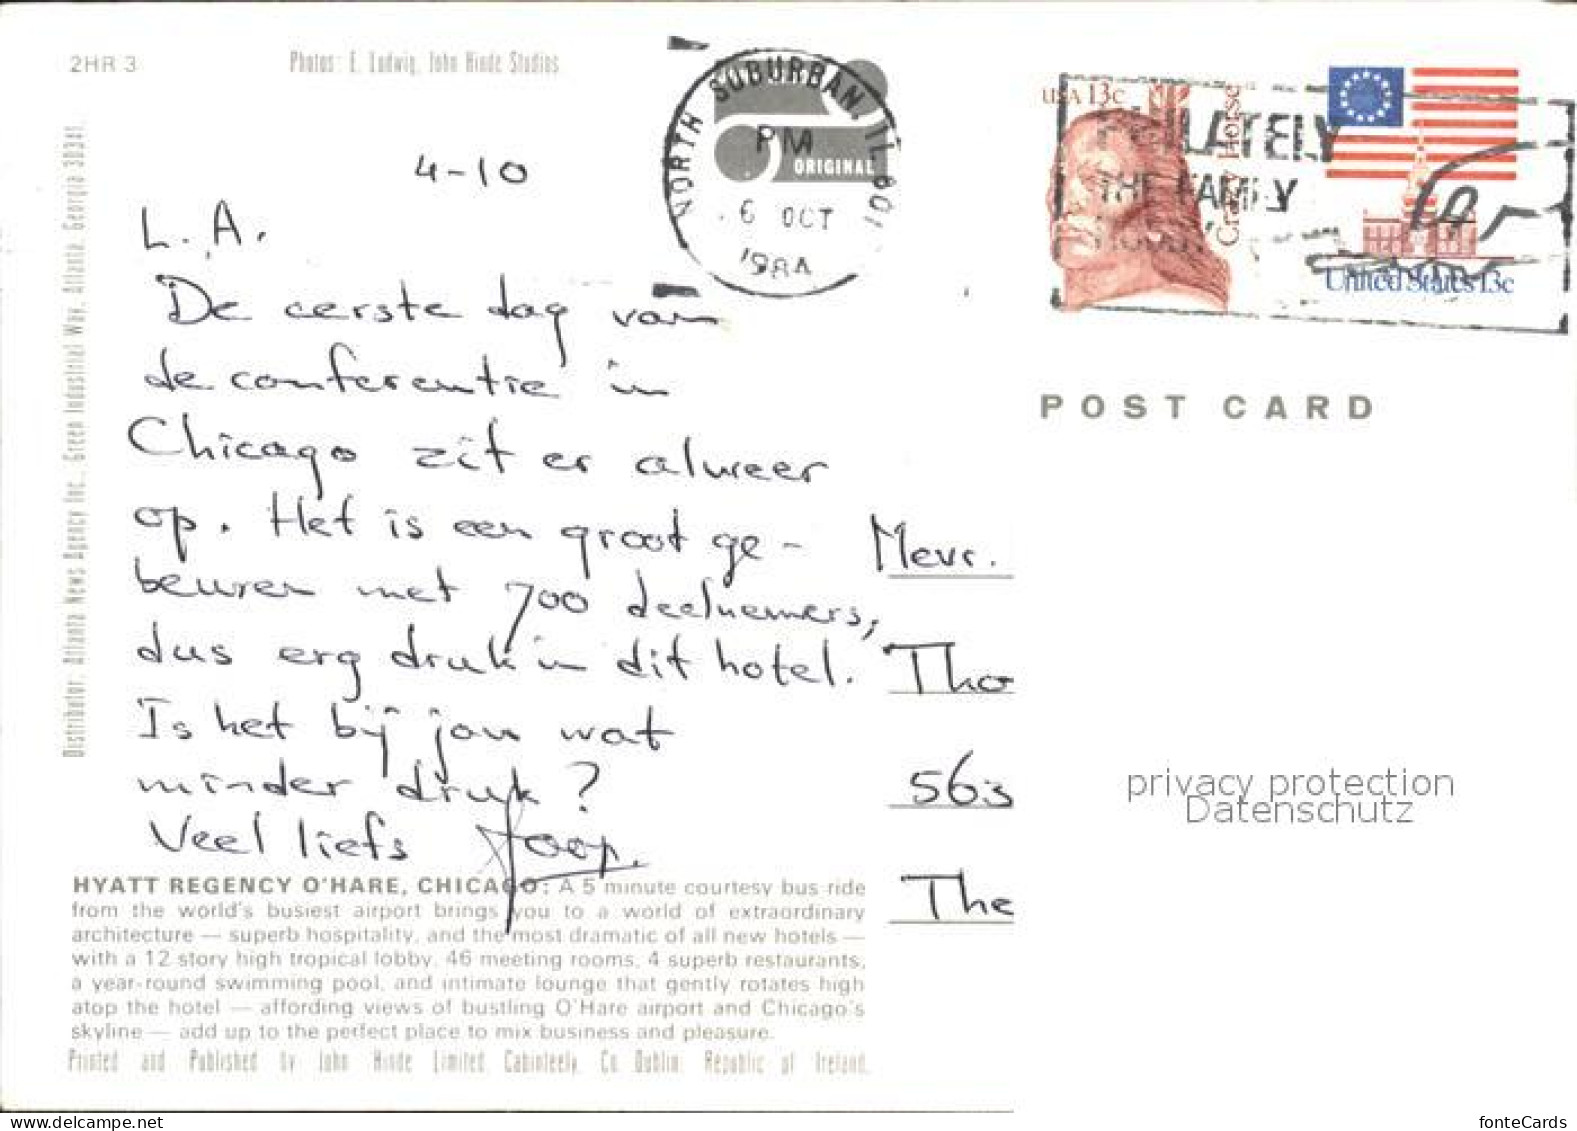 2HR 3
Photos: E. Ludwig, John Hinde Studios
Distributor: Atlanta News Agency Inc., Green Industrial Way, Atlanta, Georgia 30341.
4-10
L.A.
De eerste dag van
de conferentie in
Chicago zit er alweer
op. Het is een groot ge-
beuren met 700 deelnemers,
dus erg druk in dit hotel.
Is het bij jou wat
minder druk?
Veel liefs Joop.
HYATT REGENCY O'HARE, CHICAGO: A 5 minute courtesy bus ride
from the world's busiest airport brings you to a world of extraordinary
architecture — superb hospitality, and the most dramatic of all new hotels —
with a 12 story high tropical lobby, 46 meeting rooms, 4 superb restaurants,
a year-round swimming pool, and intimate lounge that gently rotates high
atop the hotel — affording views of bustling O'Hare airport and Chicago's
skyline — add up to the perfect place to mix business and pleasure.
Printed and Published by John Hinde Limited Cabinteely, Co. Dublin, Republic of Ireland.
NORTH SUBURBAN, IL 601
PM
6 OCT
1984
ORIGINAL
USA 13c
Crazy Horse
THE FAMILY
United States 13c
POST CARD
Mevr.
Tho
563
The
privacy protection
Datenschutz
www.delcampe.net
fonteCards